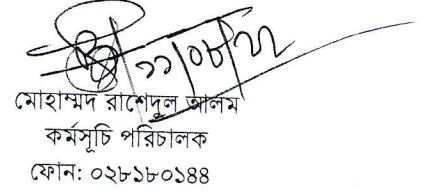 ১১/০৮/২২
মোহাম্মদ রাশেদুল আলম
কর্মসূচি পরিচালক
ফোন: ০২৮১৮০১৪৪